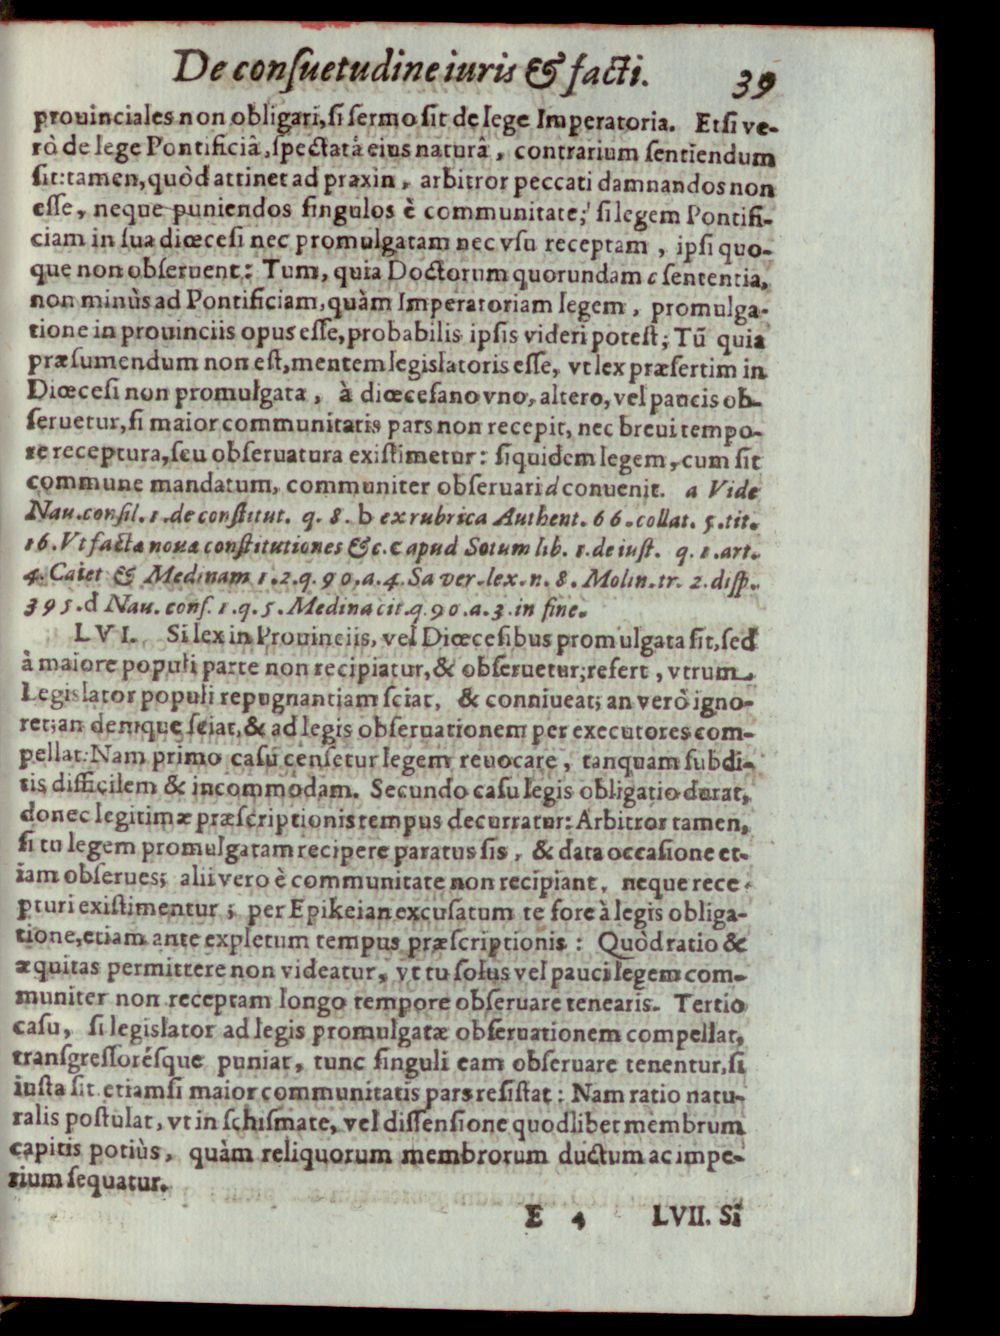 De conſuetudine iuris & facti. 39
prouinciales non obligari, ſi ſermo ſit de lege Imperatoria. Etſi ve-
rò de lege Pontificiâ, ſpectatâ eius naturâ, contrarium ſentiendum
ſit: tamen, quòd attinet ad praxin, arbitror peccati damnandos non
eſſe, neque puniendos ſingulos è communitate; ſi legem Pontifi-
ciam in ſua diœceſi nec promulgatam nec vſu receptam, ipſi quo-
que non obſeruent: Tum, quia Doctorum quorundam c ſententia,
non minùs ad Pontificiam, quàm Imperatoriam legem, promulga-
tione in prouinciis opus eſſe, probabilis ipſis videri poteſt; Tũ quia
præſumendum non eſt, mentem legislatoris eſſe, vt lex præſertim in
Diœceſi non promulgata, à diœceſano vno, altero, vel paucis ob-
ſeruetur, ſi maior communitatis pars non recepit, nec breui tempo-
re receptura, ſeu obſeruatura exiſtimetur: ſiquidem legem, cum ſit
commune mandatum, communiter obſeruari d conuenit. a Vide
Nau. conſil. 1. de conſtitut. q. 8. b ex rubrica Authent. 66. collat. 5. tit.
16. Vt factæ nouæ conſtitutiones &c. c apud Sotum lib. 1. de iuſt. q. 1. art.
4. Caiet & Medinam 1. 2. q. 90. a. 4. Sa ver. lex. n. 8. Molin. tr. 2. diſp.
395. d Nau. conſ. 1. q. 5. Medina cit. q. 90. a. 3. in fine.
LVI. Si lex in Prouinciis, vel Diœceſibus promulgata ſit, ſed
à maiore populi parte non recipiatur, & obſeruetur; refert, vtrum
Legislator populi repugnantiam ſciat, & conniueat; an verò igno-
ret; an denique ſciat, & ad legis obſeruationem per executores com-
pellat: Nam primo caſu cenſetur legem reuocare, tanquam ſubdi-
tis difficilem & incommodam. Secundo caſu legis obligatio durat,
donec legitimæ præſcriptionis tempus decurratur: Arbitror tamen,
ſi tu legem promulgatam recipere paratus ſis, & data occaſione et-
iam obſerues; alii vero è communitate non recipiant, neque rece-
pturi exiſtimentur; per Epikeian excuſatum te fore à legis obliga-
tione, etiam ante expletum tempus præſcriptionis: Quòd ratio &
æquitas permittere non videatur, vt tu ſolus vel pauci legem com-
muniter non receptam longo tempore obſeruare tenearis. Tertio
caſu, ſi legislator ad legis promulgatæ obſeruationem compellat,
transgreſſoréſque puniat, tunc ſinguli eam obſeruare tenentur, ſi
iuſta ſit etiamſi maior communitatis pars reſiſtat: Nam ratio natu-
ralis poſtulat, vt in ſchiſmate, vel diſſenſione quodlibet membrum
capitis potiùs, quàm reliquorum membrorum ductum ac impe-
rium ſequatur.
E 4 LVII. Si